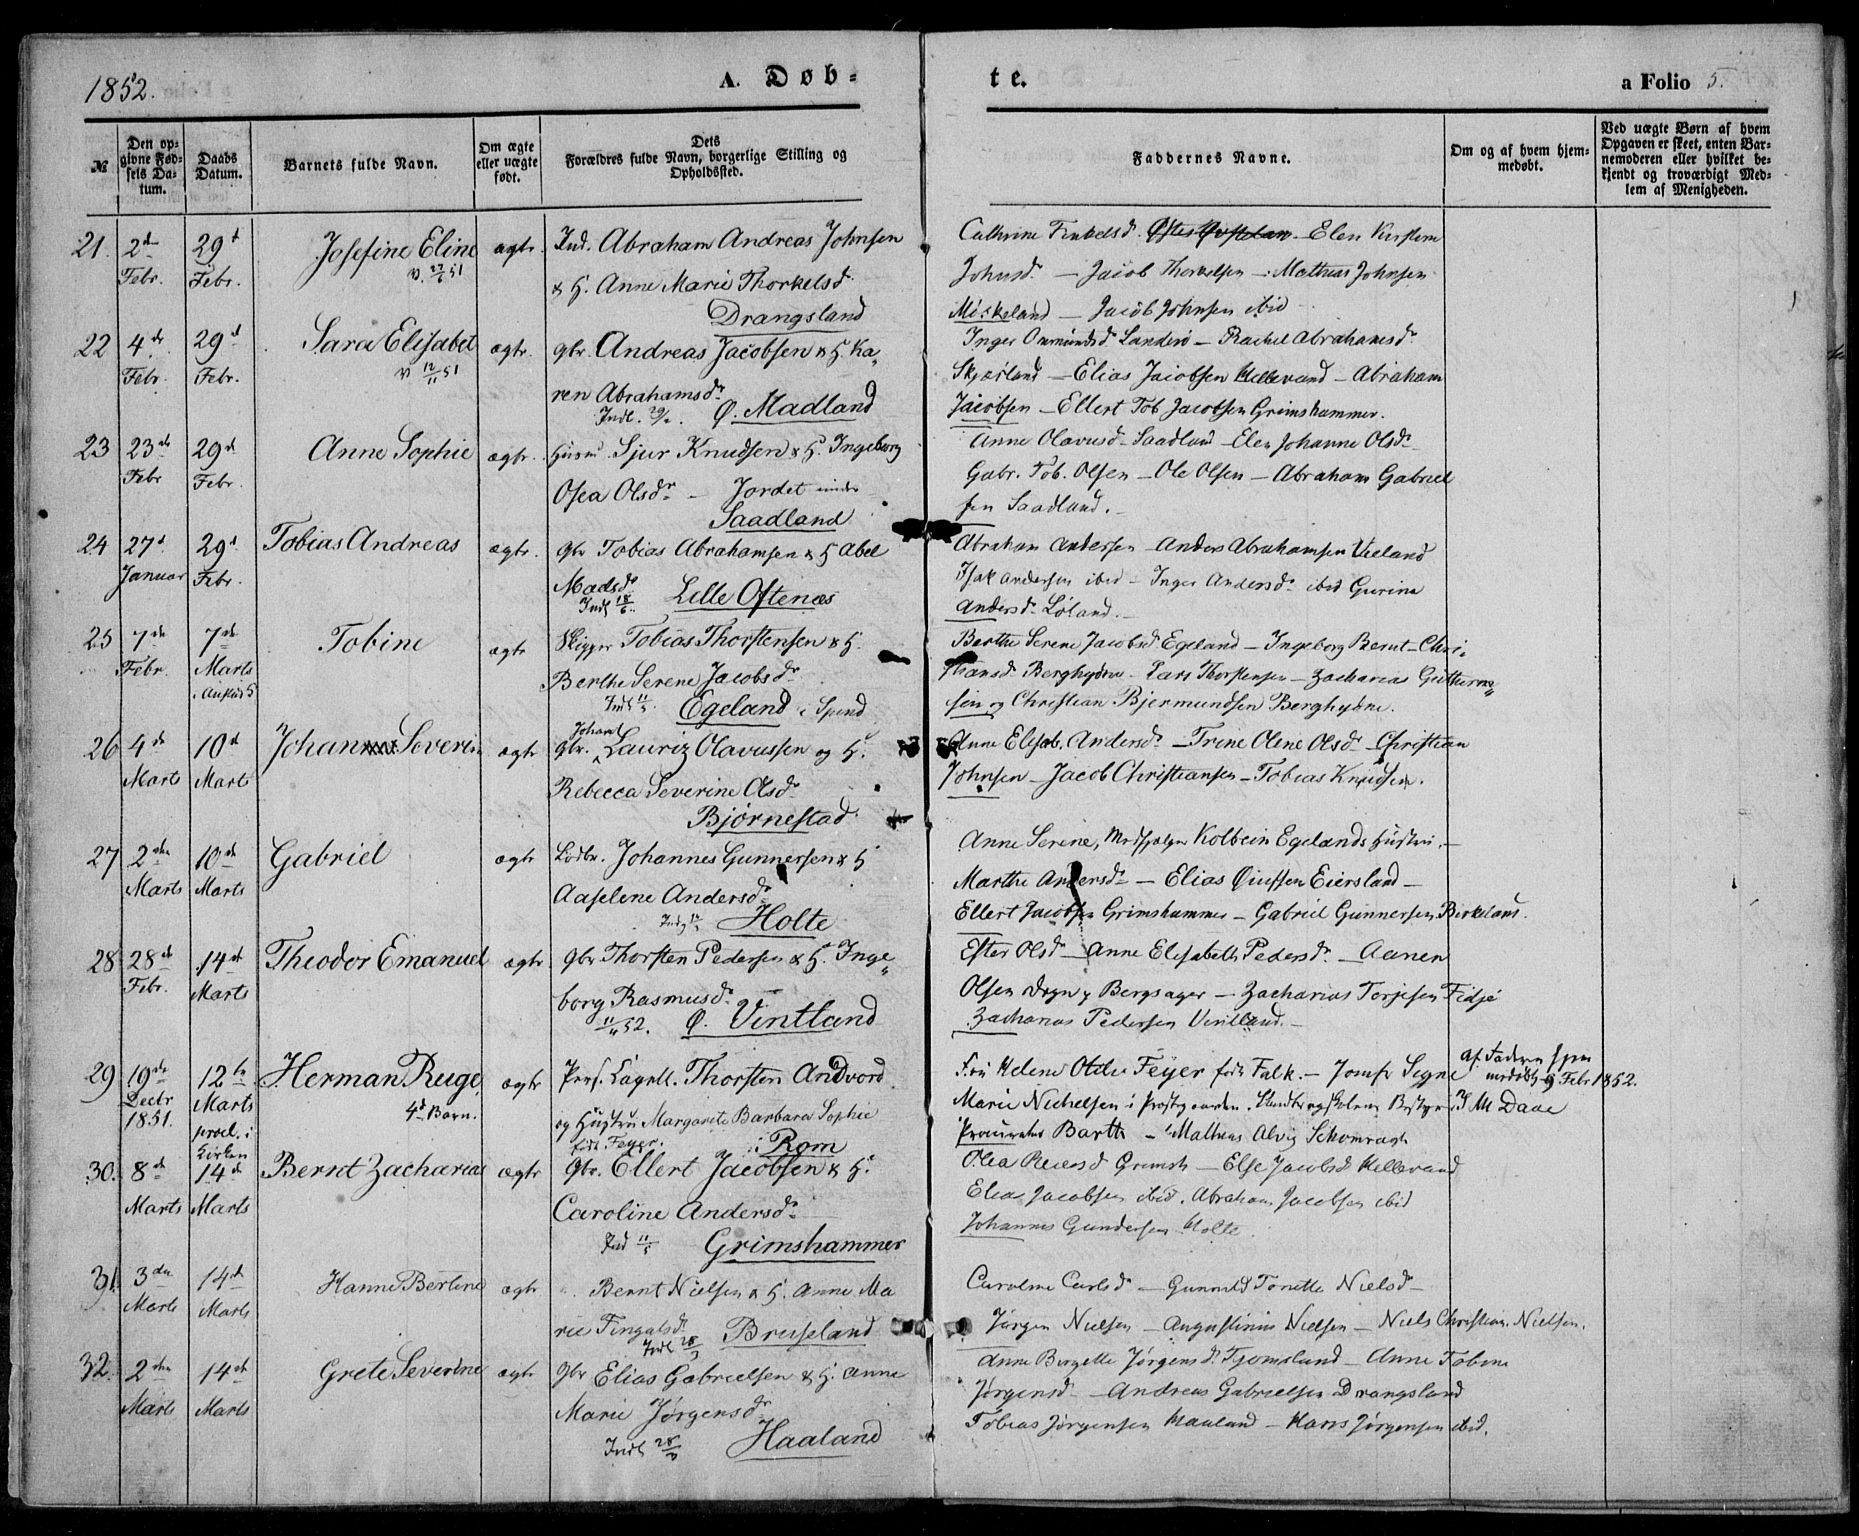 1852.
A. Døb-
te.
a Folio 5.
№
Den opgivne Fødsels Datum.
Daabs Datum.
Barnets fulde Navn.
Om ægte eller uægte født.
Dets Forældres fulde Navn, borgerlige Stilling og Opholdssted.
Faddernes Navne.
Om og af hvem hjemmedøbt.
Ved uægte Børn af hvem Opgaven er skeet, enten Barnemoderen eller hvilket bekjendt og troværdigt Medlem af Menigheden.
21. 2d Febr. 29d Febr. Josefine Eline ægte. Ind. Abraham Andreas Johnsen
& H. Anne Marie Thorkelsd.
Drangsland
Elen Kirstine
Johnsd. — Jacob Thorkelsen — Mathias Johnsen
Miskeland — Jacob Johnsen ibid
22 4de Febr. 29d Febr. Sara Elisabet ægte. Gbr. Andreas Jacobsen & H. Ka„
ren Abrahamsdr
Ø. Madland
Inger Omundsd Sanderö — Rachel Abrahamsdr
Skjæsland — Elias Jacobsen Hellevand — Abraham
Jacobsen — Ellert Tob. Jacobsen Grimshammer.
23 23de Febr 29de Febr. Anne Sophie ægte. Husm. Sjur Knudsen & H. Ingeborg
Osea Olsdr — Jordet under
Saadland
Anne Olavusd Saadland — Elen Johanne Olsdr
Gabr. Tob. Olsen — Ole Olsen — Abraham Gabriel
sen Saadland.
24 27d Januar 29d Febr. Tobias Andreas ægte. Gbr Tobias Abrahamsen & H Abel
Madsdr
Lille Oftenæs
Abraham Andersen — Anders Abrahamsen Vieland
Isak Andersen ibid — Inger Andersdr ibid Gurine
Andersdr Löland.
25 7de Febr. 7de Marts Tobine ægte Skipper Tobias Thorstensen & H.
Berthe Serene Jacobsdr
Egeland i Spind
Berthe Serene Jacobsd Egeland — Ingeborg Bernt-Chri-
stiansd. Berghydne — Lars Thorstensen — Zacharias Guttorm„
sen og Christian Bjermundsen Berghydne.
26 4de Marts 10de Marts Johan Severin ægte Gbr. Johan Lauriz Olavussen og H.
Rebecca Severine Olsdr
Bjørnestad
Anne Elisab. Andersdr — Trine Olene Olsdr Christian
Johnsen — Jacob Christiansen — Tobias Knudsen.
27 2den Marts 10de Marts Gabriel ægte Lodbr. Johannes Gunnersen & H
Aaselene Andersdr
Holte
Anne Serene, Medhjælper Kolbein Egelands Hustru.
Marthe Andersdr — Elias Eiersland —
Ellert Jacobsen Grimshammer — Gabriel Gunnersen Birkeland.
28 28de Febr. 14de Marts Theodor Emanuel ægte Gbr Thorsten Pedersen & H. Inge„
borg Rasmusdr
Ø. Vintland
Ester Olsd — Anne Elisabeth Pedersdr — Aanen
Olsen Bergsager — Zacharias Torjesen Fidje
Zacharias Pedersen Vintland.
29 19de Decbr 1851. 12te Marts præs. i Kirken Herman Ruge 4de Barn. ægte Pers. Capell. Thorsten Andvord
og Hustru Margarete Barbara Sophie
født Feyer. i Rom
Fru Helene Feyer født Falk. — Jomfr Signe
Marie Nichelsen i Præstegaarden. S. M. Daae
Procurator Barth — Mathias Alvig
af Faderen hjem
medøbt 9 Febr 1852.
30. 8de Marts 14de Marts Bernt Zacharias ægte Gbr. Ellert Jacobsen & H.
Caroline Andersdr
Ind 11/5 Grimshammer
Olea Reiersd Grimsh — Else Jacobsd Hellevand
Elias Jacobsen ibid. Abraham Jacobsen ibid
Johannes Gundersen Holte
31. 3die Marts 14de Marts Hanne Bertine ægte Bernt Nielsen & H. Anne Ma
rie Fingalsdr
Bruseland
Caroline Carlsdr — Gunnild Tonette Nielsdr
Jørgen Nielsen — Augustinius Nielsen — Niels Christian Nielsen.
32. 2den Marts 14de Marts Grete Severine ægte Gbr Elias Gabrielsen & H. Anne
Marie Jørgensdr
Indl 28/3 Haaland
Anne Birgette Jørgensd. Tjomsland — Anne Tobine
Jørgensd — Andreas Gabrielsen Drangsland
Tobias Jørgensen Haaland — Hans Jørgensen ibid.